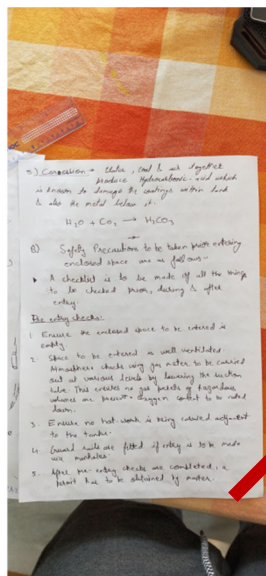 5) Corrosion → Water, coal & ash together
produce Hydrocarbonic acid which
is known to damage the coatings within tank
& also the metal below it.
H₂O + CO₂ → H₂CO₃
B) Safety Precautions to be taken prior entering
enclosed space are as follows -
A checklist is to be made of all the things
to be checked prior, during & after
entry.
Pre entry checks:
1. Ensure the enclosed space to be entered is
empty
2. Space to be entered is well ventilated
Atmosphere checks using gas meter to be carried
out at various levels by lowering the suction
tube. This ensures no gas pockets of hazardous
volumes are present. Oxygen content to be noted
down.
3. Ensure no hot work is being carried adjacent
to the tanks.
4. Guard rails are fitted if entry is to be made
via manholes.
5. After pre-entry checks are completed, a
permit has to be obtained by master.